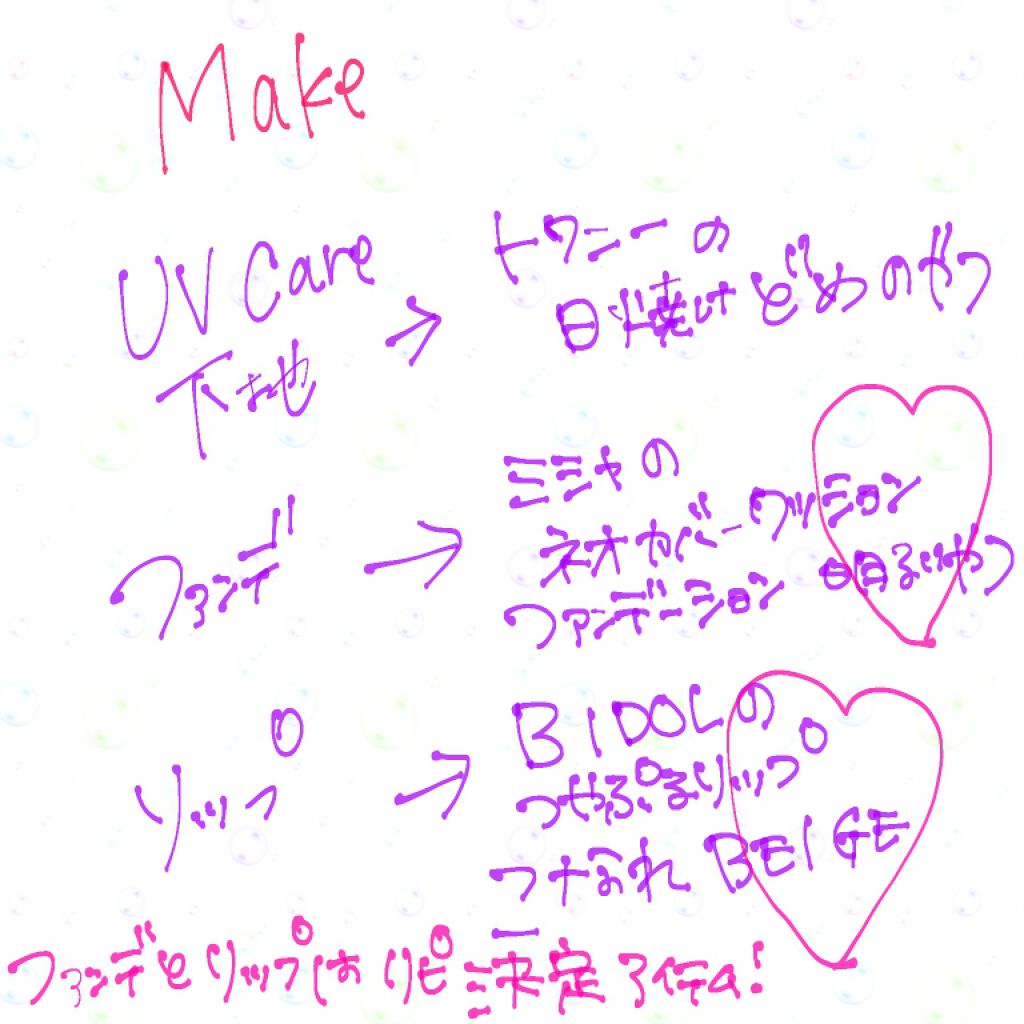 Make
UV Care
下地
→
トワニーの
日焼けどめのやつ
ファンデ
→
ミシャの
ネオカバークッション
ファンデーション 明るいやつ
リップ
→
BIDOLの
つやぷるリップ
BEIGE
ファンデとリップはリピ決定